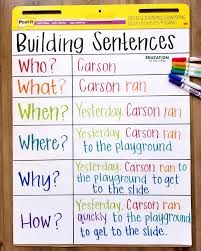 Post-it
Building Sentences
EDUCATION
Who? Carson
What? Carson ran
When? Yesterday, Carson ran
Where? Yesterday, Carson ran
to the playground
Why? Yesterday, Carson ran to
the playground to get
to the slide
How? Yesterday, Carson ran
quickly to the playground
to get to the slide.